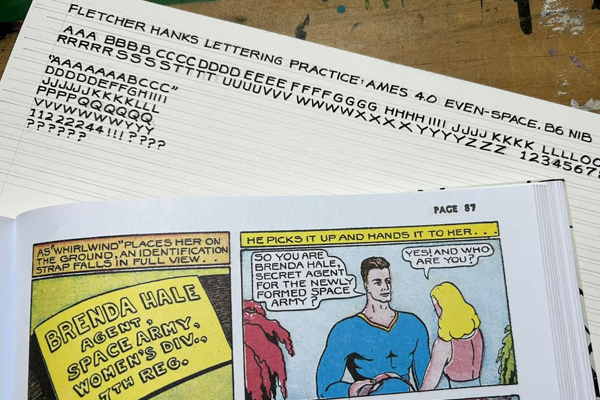 FLETCHER HANKS LETTERING PRACTICE: AMES 4.0 EVEN-SPACE. B6 NIB
AAA BBBB CCCC DDDD EEEE FFFF GGGG HHHH IIII JJJJ KKKK LLLL
RRRRR SSSS TTTT UUUU VVV WWWW XXXX YYYY ZZZ 1234567
"AAAAAAABCCC"
DDDDDEFFGHIIII
JJJJJJKKKKLLL
PPPPQQQQQQ
VVVWWWWYYY
11222244!!!????
??????
PAGE 87
AS "WHIRLWIND" PLACES HER ON
THE GROUND, AN IDENTIFICATION
STRAP FALLS IN FULL VIEW. . .
BRENDA HALE
AGENT,
SPACE ARMY,
WOMEN'S DIV.,
7TH REG.
HE PICKS IT UP AND HANDS IT TO HER. . . .
SO YOU ARE
BRENDA HALE,
SECRET AGENT
FOR THE NEWLY
FORMED SPACE
ARMY?
YES! AND WHO
ARE YOU?